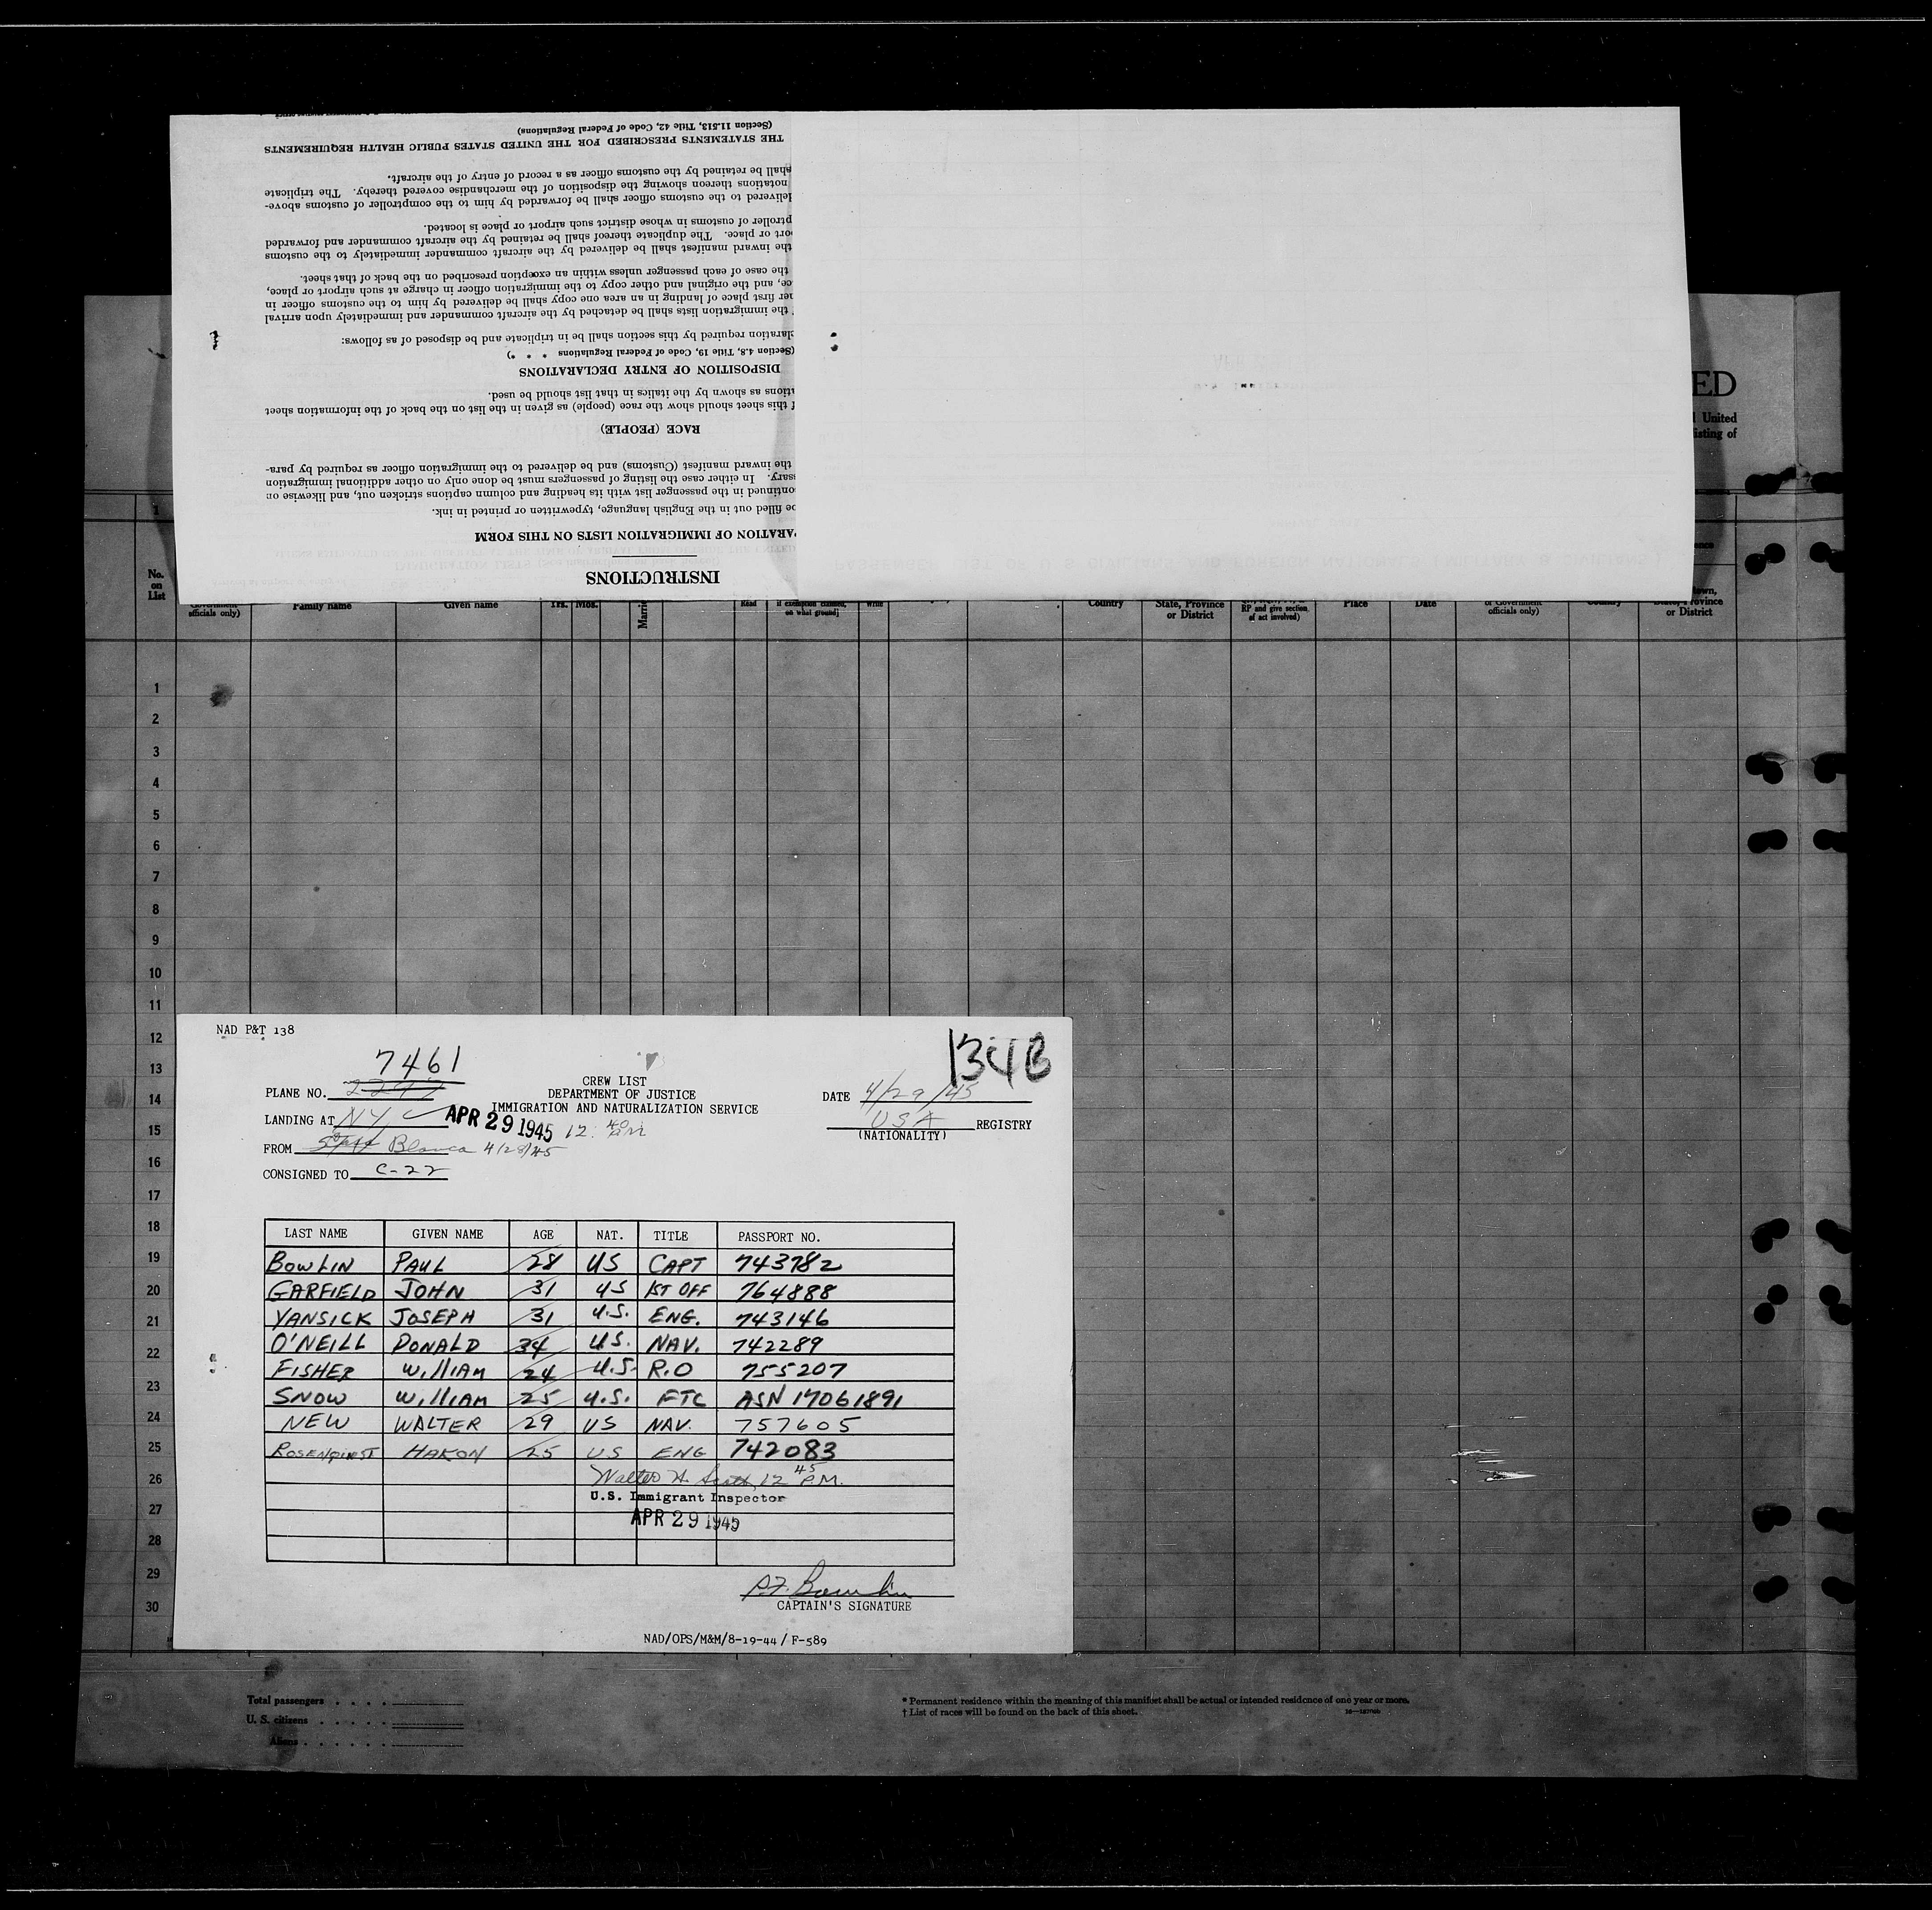 INSTRUCTIONS
PARATION OF IMMIGRATION LISTS ON THIS FORM
be filled out in the English language, typewritten or printed in ink.
continued in the passenger list with its heading and column captions stricken out, and likewise on
ssary. In either case the listing of passengers must be done only on other additional immigration
the inward manifest (Customs) and be delivered to the immigration officer as required by para-
RACE (PEOPLE)
f this sheet should show the race (people) as given in the list on the back of the information sheet
ations as shown by the italics in that list should be used.
DISPOSITION OF ENTRY DECLARATIONS
(Section 4.8, Title 19, Code of Federal Regulations * * *)
laration required by this section shall be in triplicate and be disposed of as follows:
the immigration lists shall be detached by the aircraft commander and immediately upon arrival
her first place of landing in an area one copy shall be delivered by him to the customs officer in
ce, and the original and other copy to the immigration officer in charge at such airport or place,
the case of each passenger unless within an exception prescribed on the back of that sheet.
the inward manifest shall be delivered by the aircraft commander immediately to the customs
port or place. The duplicate thereof shall be retained by the aircraft commander and forwarded
ptroller of customs in whose district such airport or place is located.
delivered to the customs officer shall be forwarded by him to the comptroller of customs above-
notations thereon showing the disposition of the merchandise covered thereby. The triplicate
shall be retained by the customs officer as a record of entry of the aircraft.
THE STATEMENTS PRESCRIBED FOR THE UNITED STATES PUBLIC HEALTH REQUIREMENTS
(Section 11.513, Title 42, Code of Federal Regulations)
ED
United
isting of
No. on List
officials only) Family name Given name Yrs. Mos. Read if exemption claimed, on what ground] Write Country State, Province or District RP and give section of act involved) Place Date or Government officials only) Country town, State, Province or District
1
2
3
4
5
6
7
8
9
10
11
12
13
14
15
16
17
18
19
20
21
22
23
24
25
26
27
28
29
30
NAD P&T 138
134B
7461
CREW LIST
PLANE NO. 2297 DEPARTMENT OF JUSTICE DATE 4/29/45
IMMIGRATION AND NATURALIZATION SERVICE
LANDING AT NYC APR 29 1945 12 40 PM USA REGISTRY
(NATIONALITY)
FROM Blanca 4/28/45
CONSIGNED TO C-22
LAST NAME GIVEN NAME AGE NAT. TITLE PASSPORT NO.
BOWLIN PAUL 28 US CAPT 743782
GARFIELD JOHN 31 US 1ST OFF 764888
YANSICK JOSEPH 31 U.S. ENG. 743146
O'NEILL DONALD 34 U.S. NAV. 742289
FISHER WILLIAM 24 U.S. R.O 755207
SNOW WILLIAM 25 U.S. FTC ASN 17061891
NEW WALTER 29 US NAV. 757605
ROSENQUIST HAKON 25 US ENG 742083
Walter H. Scott, 12 45 P.M.
U.S. Immigrant Inspector
APR 29 1945
P.F. Bowlin
CAPTAIN'S SIGNATURE
NAD/OPS/M&M/8-19-44/F-589
Total passengers
U. S. citizens
Aliens
* Permanent residence within the meaning of this manifest shall be actual or intended residence of one year or more.
† List of races will be found on the back of this sheet.